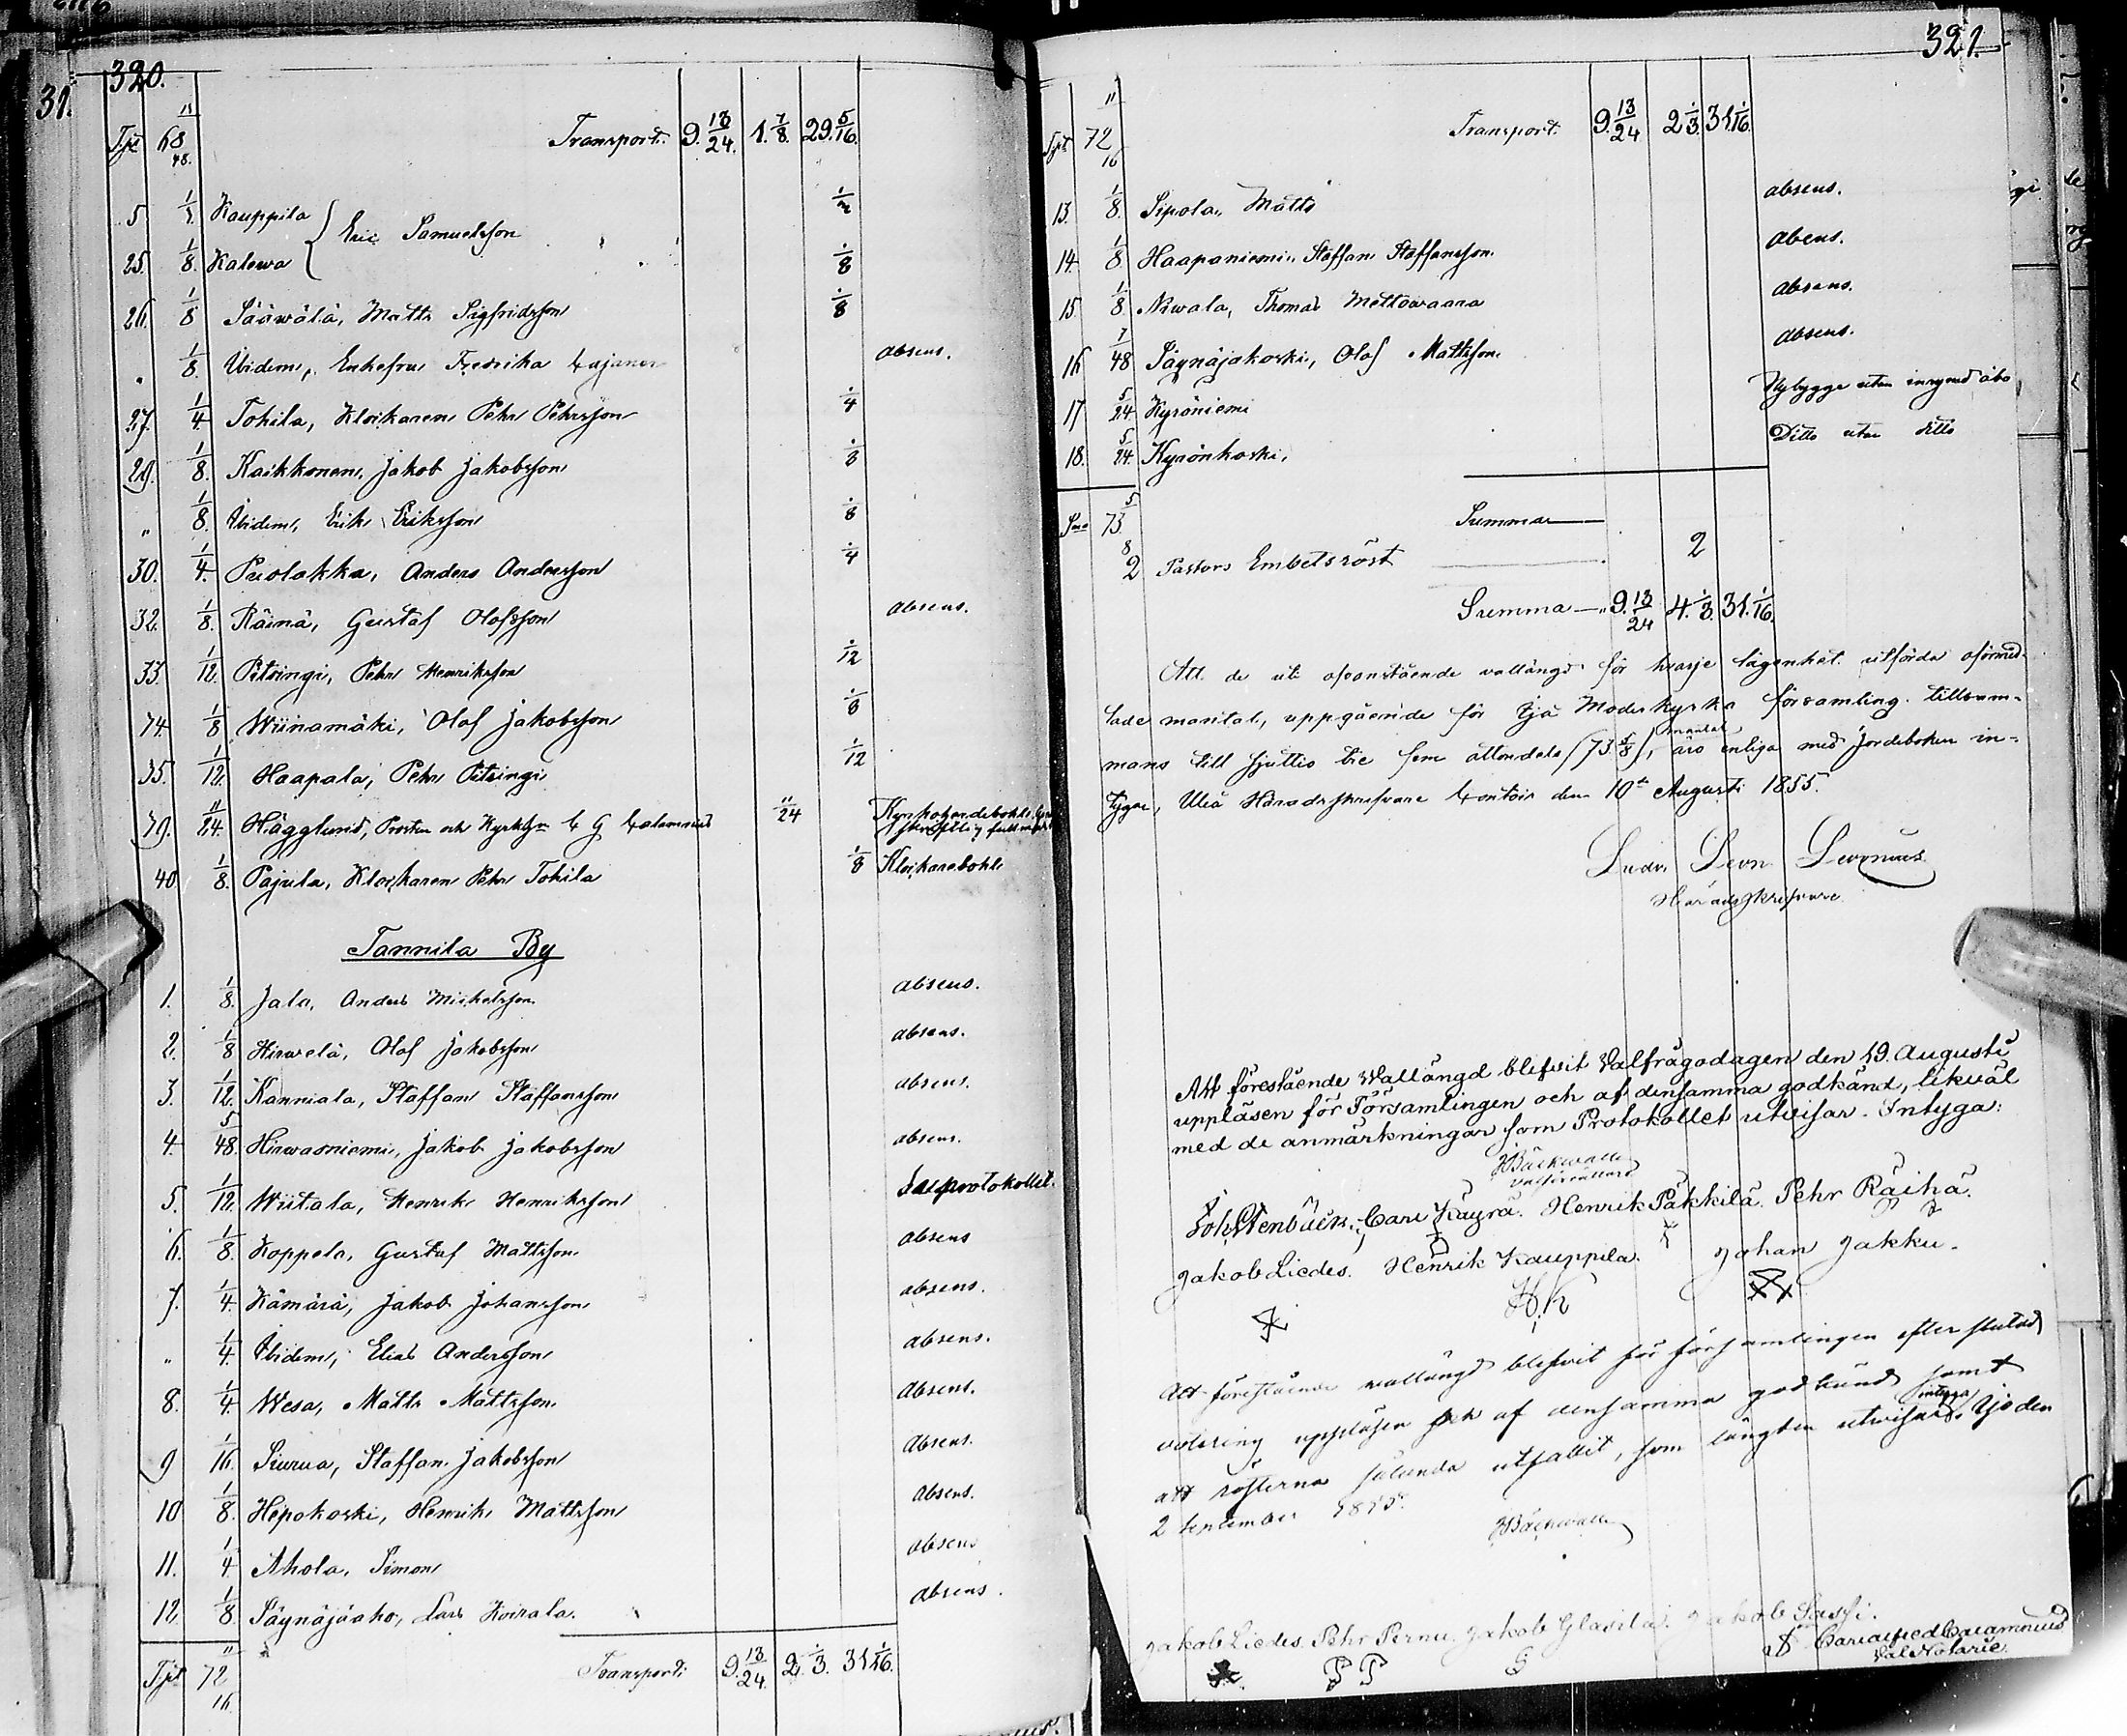 320.
31.
Tpt 68 11/48. Transport. 9. 13/24. 1. 7/8. 29. 5/16.
5 Kauppila } Eric Samuelsson 1/2
25. 1/8. Kalewa 1/8
26. 1/8 Sääwälä, Matts Sigfridsson 1/8
" 1/8. Ibidem, Enkefru Fredrika Cajaner absens.
27. 1/4. Tohila, Klockaren Pehr Pehrsson 1/4
29. 1/8. Kaikkonen, Jakob Jakobsson 1/8
" 1/8. Ibidem, Erik Eriksson 1/8
30. 1/4. Puolakka, Anders Andersson 1/4
32. 1/8. Räinä, Gustaf Olofsson absens.
33. 1/12. Pitsingi, Pehr Henriksson 1/12
74. 1/8 Wiinamäki, Olof Jakobsson 1/8
35. 1/12. Haapala, Pehr Pitsingi 1/12
39. 11/24. Hägglund, Prosten och Kyrkh. C G Calamnius 11/24 Kyrkoherdebohle
40 1/8. Pajula, Klockaren Pehr Tohila 1/8 Klockarebohle
Tannila By
1. 1/8. Jala, Anders Michelsson absens.
2. 1/8 Hirwelä, Olof Jakobsson absens.
3. 1/12. Kanniala, Staffan Staffansson absens.
4. 5/48. Hirwasniemi, Jakob Jakobsson absens.
5. 1/12. Wiitala, Henrik Henriksson Se protokollet.
6. 1/8. Koppela, Gustaf Mattsson absens
7. 1/4. Kämärä, Jakob Johansson absens.
" 1/4. Ibidem, Elias Andersson absens.
8. 1/4. Wesa, Matts Mattsson. absens.
9 1/16. Siurua, Staffan Jakobsson absens.
10 1/8. Hepokoski, Henrik Mattsson absens.
11. 1/4 Ahola, Simon absens
12. 1/8. Säynäjäaho, Lars Koirala. absens.
Tpt 72 11/16 Transport: 9. 13/24. 2. 1/3. 31 1/16.
321.
Tpt 72 11/16 Transport. 9. 13/24 2 1/3. 31. 1/16.
13. 1/8. Sipola, Matts absens.
14. 1/8. Haapaniemi, Staffan Staffansson. absens.
15. 1/8. Niwala, Thomas Mettowaara absens.
16 7/48 Säynäjäkoski, Olof Mattsson absens.
17 5/24 Kyröniemi Nybygge utan inrymd åbo
18. 5/24. Kyrönkoski, Ditto utan ditto
Sma 73 5/8 Summa
2 Pastors Embetsröst 2
Summa 9. 13/24 4. 1/3. 31. 1/16.
Att de uti ofvanstående vallängd för hvarje lägenhet utförda oförmed-
lade mantal, uppgående för Ijo Moderkyrko församling tillsam-
mans till sjuttio tre fem åttondels (73 5/8) mantal, äro enliga med Jordeboken in-
tygar, Uleå Häradsskrifvare Contoir den 10de Augusti 1855.
Ludv. Leon Levonius
Häradsskrifvare
Att förestående Vallängd blifvit Valfrågodagen den 19. Augusti
uppläsen för Församlingen och af densamma godkänd, likväl
med de anmärkningar som Protokollet utvisar. Intyga:
Bäckvall
Valförrättare
Joh. Stenbäck. Carl Käyrä. Henrik Päkkilä. Pehr Räihä.
Jakob Liedes. Henrik Kauppila. Johan Jakku.
H.K
Att förestående vallängd blifvit för församlingen efter slutad
votering uppläsen och af densamma godkänd samt
att rösterna sålunda utfallit, som längden utvisar, intyga Ijo den
2 September 1855.
Bäckvall
Jakob Liedes. Pehr Pernu. Jakob Glasila. Jakob Sassi.
P P
Carl Alfred Calamnius
Val Notarie.